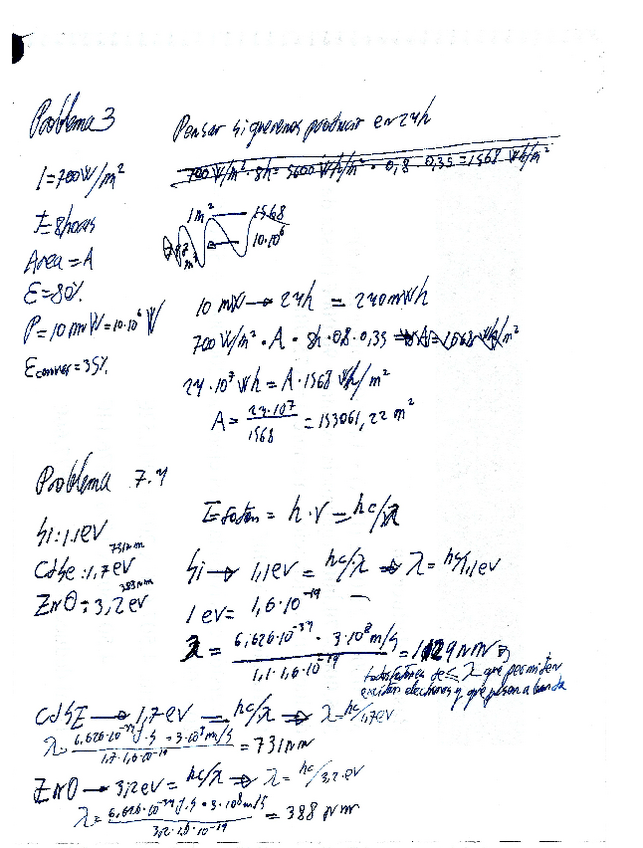 Problema 3
Pensar si queremos producir en 24h
I = 700 W/m²
700 W/m² · 8h = 5600 Wh/m² · 0,8 · 0,35 = 1568 Wh/m²
t = 8 horas
1 m² — 1568
10·10⁶
Area = A
ε = 80%
P = 10 mW = 10·10⁶ W
10 mW → 24h = 240 mWh
700 W/m² · A · 8h · 0,8 · 0,35
Econver = 35%
24·10⁷ Wh = A · 1568 Wh/m²
A = 24·10⁷ / 1568 = 153061,22 m²
Problema 7.4
E foton = h · ν = hc/λ
Si : 1.1 eV
731 nm
CdSe : 1,7 eV
Si → 1,1 eV = hc/λ ⇒ λ = hc/1,1 eV
388 nm
ZnO : 3,2 eV
1 eV = 1,6·10⁻¹⁹
λ = 6,626·10⁻³⁴ · 3·10⁸ m/s / 1,1 · 1,6·10⁻¹⁹ = 1129 nm
de ≤ λ que permiten
excitar electrones y que pasen a banda
CdSE → 1,7 eV = hc/λ ⇒ λ = hc/1,7 eV
λ = 6,626·10⁻³⁴ J·s · 3·10⁸ m/s / 1,7 · 1,6·10⁻¹⁹ = 731 nm
ZnO → 3,2 eV = hc/λ ⇒ λ = hc/3,2 eV
λ = 6,626·10⁻³⁴ J·s · 3·10⁸ m/s / 3,2 · 1,6·10⁻¹⁹ = 388 nm